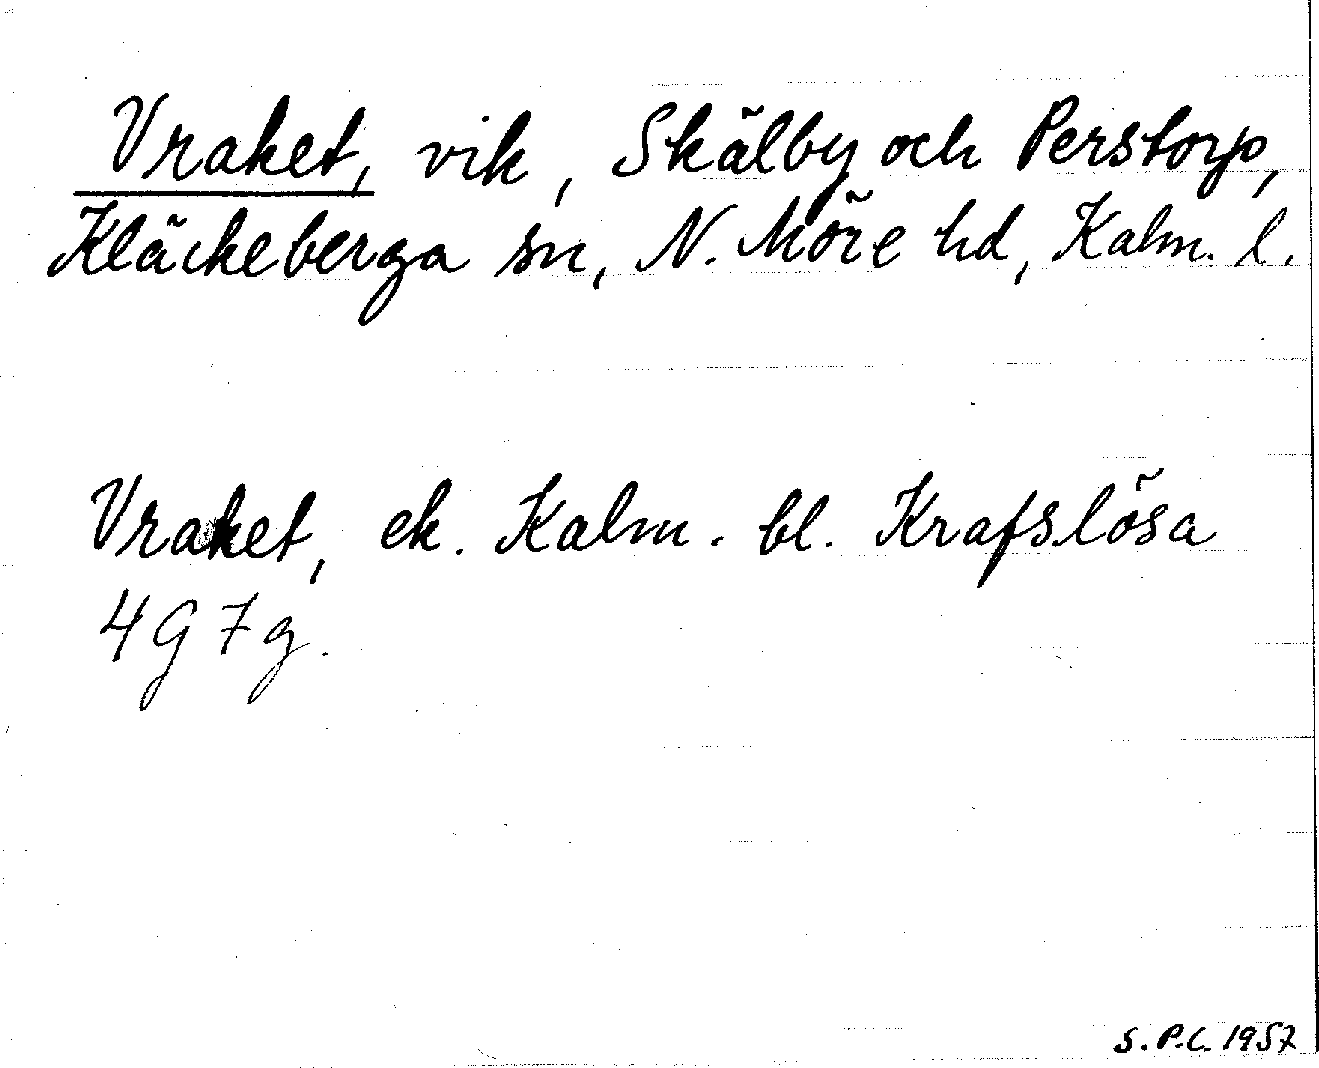 Vraket, vik, Skälby och Perstorp,
Kläckeberga sn, N. Möre hd, Kalm. l.
Vraket, ek. Kalm. bl. Krafslösa
4 G 7 g.
S.P.C. 1957